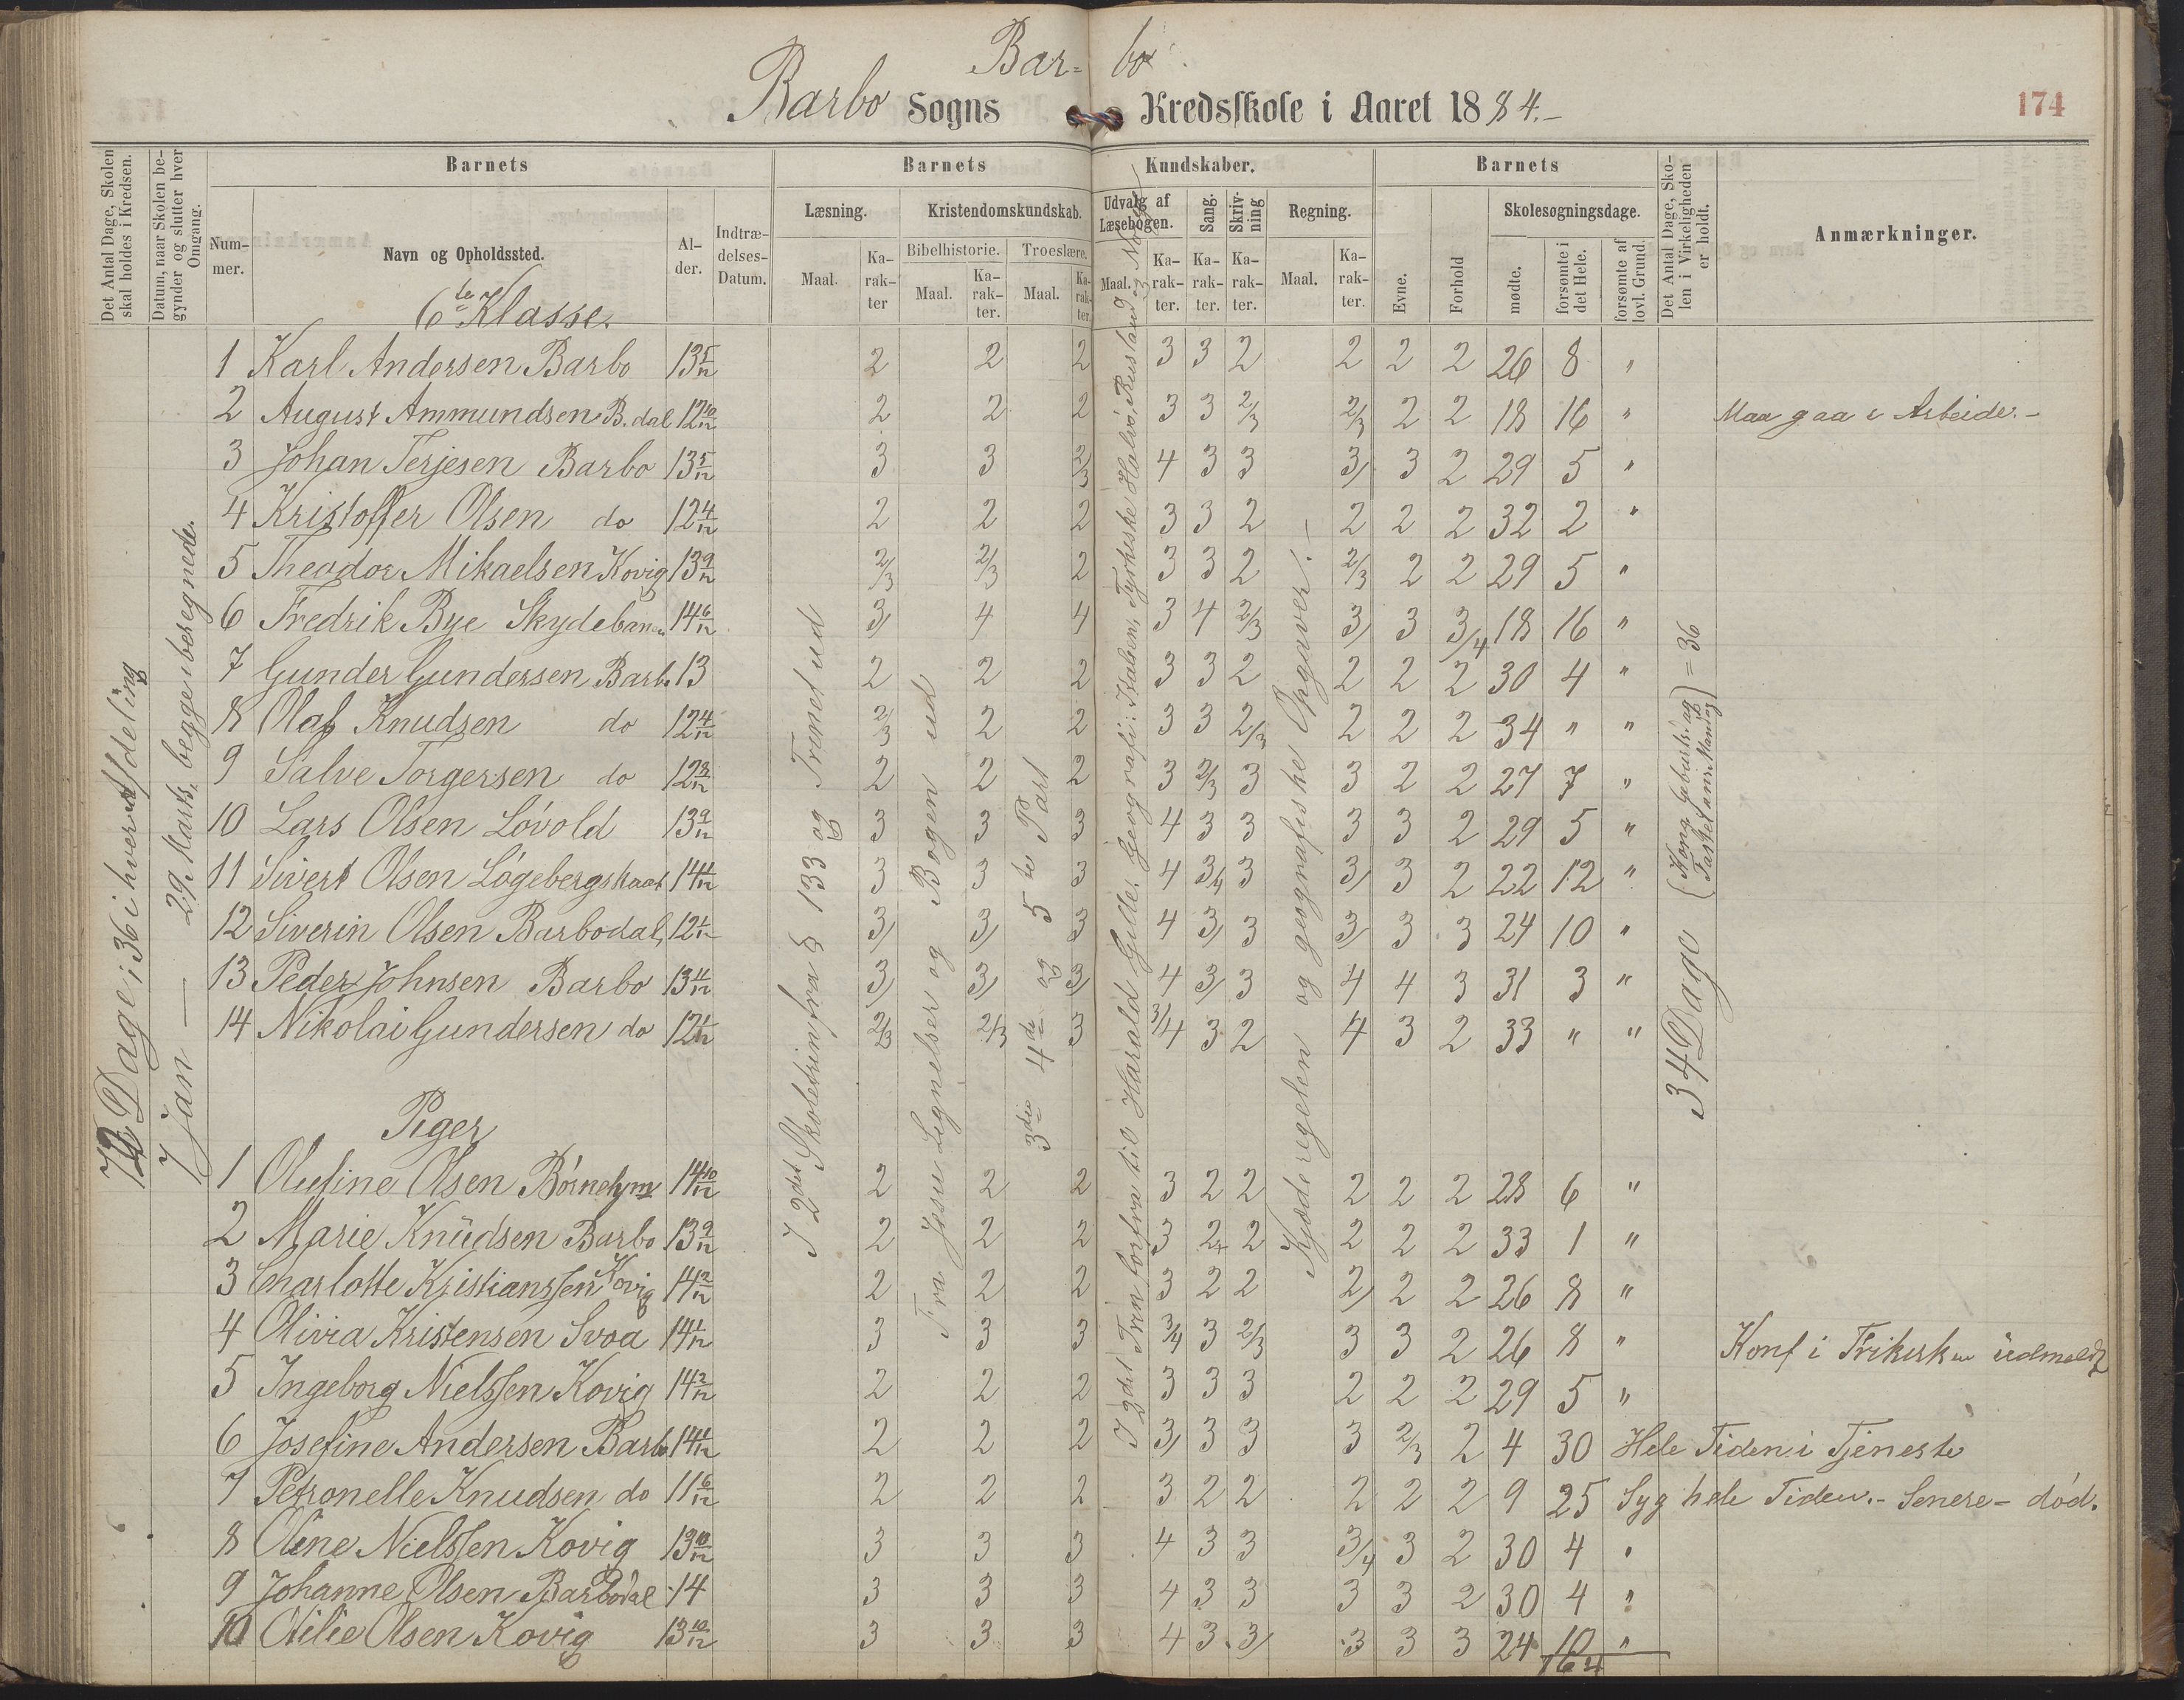 Bar= bo
Barbo Sogns Kredsskole i Aaret 1884.-
174
Det Antal Dage, Skolen skal holdes i Kredsen.
Datum, naar Skolen begynder og slutter hver Omgang.
Barnets
Nummer.
Navn og Opholdssted.
Alder.
Indtrædelses-Datum.
Barnets Kundskaber.
Læsning.
Maal.
Karakter
Kristendomskundskab.
Bibelhistorie.
Maal.
Karakter.
Troeslære.
Maal.
Karakter.
Udvalg af Læsebogen.
Maal.
Karakter.
Sang.
Karakter.
Skrivning
Karakter.
Regning.
Maal.
Karakter.
Barnets
Evne.
Forhold
Skolesøgningsdage.
mødte.
forsømte i det Hele.
forsømte af lovl. Grund.
Det Antal Dage, Skolen i Virkeligheden er holdt.
Anmærkninger.
72 Dage; 36 i hver Afdeling
7 Jan — 29. Marts, begge iberegnede.
I 2det Skoletrin fra § 133 og Trinet ud
Fra Jesu Lignelser og Bogen ud
3die 4de og 5te Part
I 2det Trin forfra til Harald Gille. Geografi: Italien, Tyrkiske Halvø, Rusland og Norge
Kjæderegelen og geografiske Opgaver.-
34 Dage (Kong Geburtsdag Fastelavns Mandag) = 36
6te Klasse.
1 Karl Andersen Barbo 13 5/12 2 2 2 3 3 2 2 2 2 26 8 "
2 August Ammundsen B.dal 12 10/12 2 2 2 3 3 2/3 2/3 2 2 18 16 " Maa gaa i Arbeide.-
3 Johan Terjesen Barbo 13 5/12 3 3 2/3 4 3 3 3/ 3 2 29 5 "
4 Kristoffer Olsen do 12 4/12 2 2 2 3 3 2 2 2 2 32 2 "
5 Theodor Mikaelsen Kovig 13 9/12 2/3 2/3 2 3 3 2 2/3 2 2 29 5 "
6 Fredrik Bye Skydebanen 14 6/12 3/ 4 4 3 4 2/3 3/ 3 3/4 18 16 "
7 Gunder Gundersen Barb. 13 2 2 2 3 3 2 2 2 2 30 4 "
8 Olaf Knudsen do 12 4/12 2/3 2 2 3 3 2/3 2 2 2 34 " "
9 Salve Torgersen do 12 8/12 2 2 2 3 2/3 3 3 2 2 27 7 "
10 Lars Olsen Løvold 13 9/12 3 3 3 4 3 3 3 3 2 29 5 "
11 Sivert Olsen Løgebergskaat 14 4/12 3 3 3 4 3/4 3 3/ 3 2 22 12 "
12 Siverin Olsen Barbodal, 12 1/12 3/ 3/ 3 4 3/ 3 3/ 3 3 24 10 "
13 Peder Johnsen Barbo 13 11/12 3/ 3/ 3/ 4 3/ 3 4 4 3 31 3 "
14 Nikolai Gundersen do 12 1/12 2/3 2/3 3 3/4 3 2 4 3 2 33 " "
Piger
1 Olufine Olsen Børnehjm 14 10/12 2 2 2 3 2 2 2 2 2 28 6 "
2 Marie Knudsen Barbo 13 9/12 2 2 2 3 2 2 2 2 2 33 1 "
3 Charlotte Kristianssen Kovig 14 2/12 2 2 2 3 2 2 2/ 2 2 26 8 "
4 Olivia Kristensen Svoa 14 1/12 3 3 3 3/4 3 2/3 3 3 2 26 8 " Konf i Frikirken udmeldt
5 Ingeborg Nielssen Kovig 14 2/12 2 2 2 3 3 3 2 2 2 29 5 "
6 Josefine Andersen Barbo 14 1/12 2 2 2 3/ 3 3 3 2/3 2 4 30 Hele Tiden i Tjeneste
7 Petronelle Knudsen do 11 6/12 2 2 2 3 2 2 2 2 2 9 25 Syg hele Tiden.- Senere - død.
8 Oline Nielssen Kovig 13 10/12 3 3 3 4 3 3 3/4 3 2 30 4 "
9 Johanne Olsen Barbodal 14 3 3 3 4 3 3 3 3 2 30 4 "
10 Otilie Olsen Kovig 13 10/12 3 3 3 4 3 3/ 3 3 3 24 10 "
164